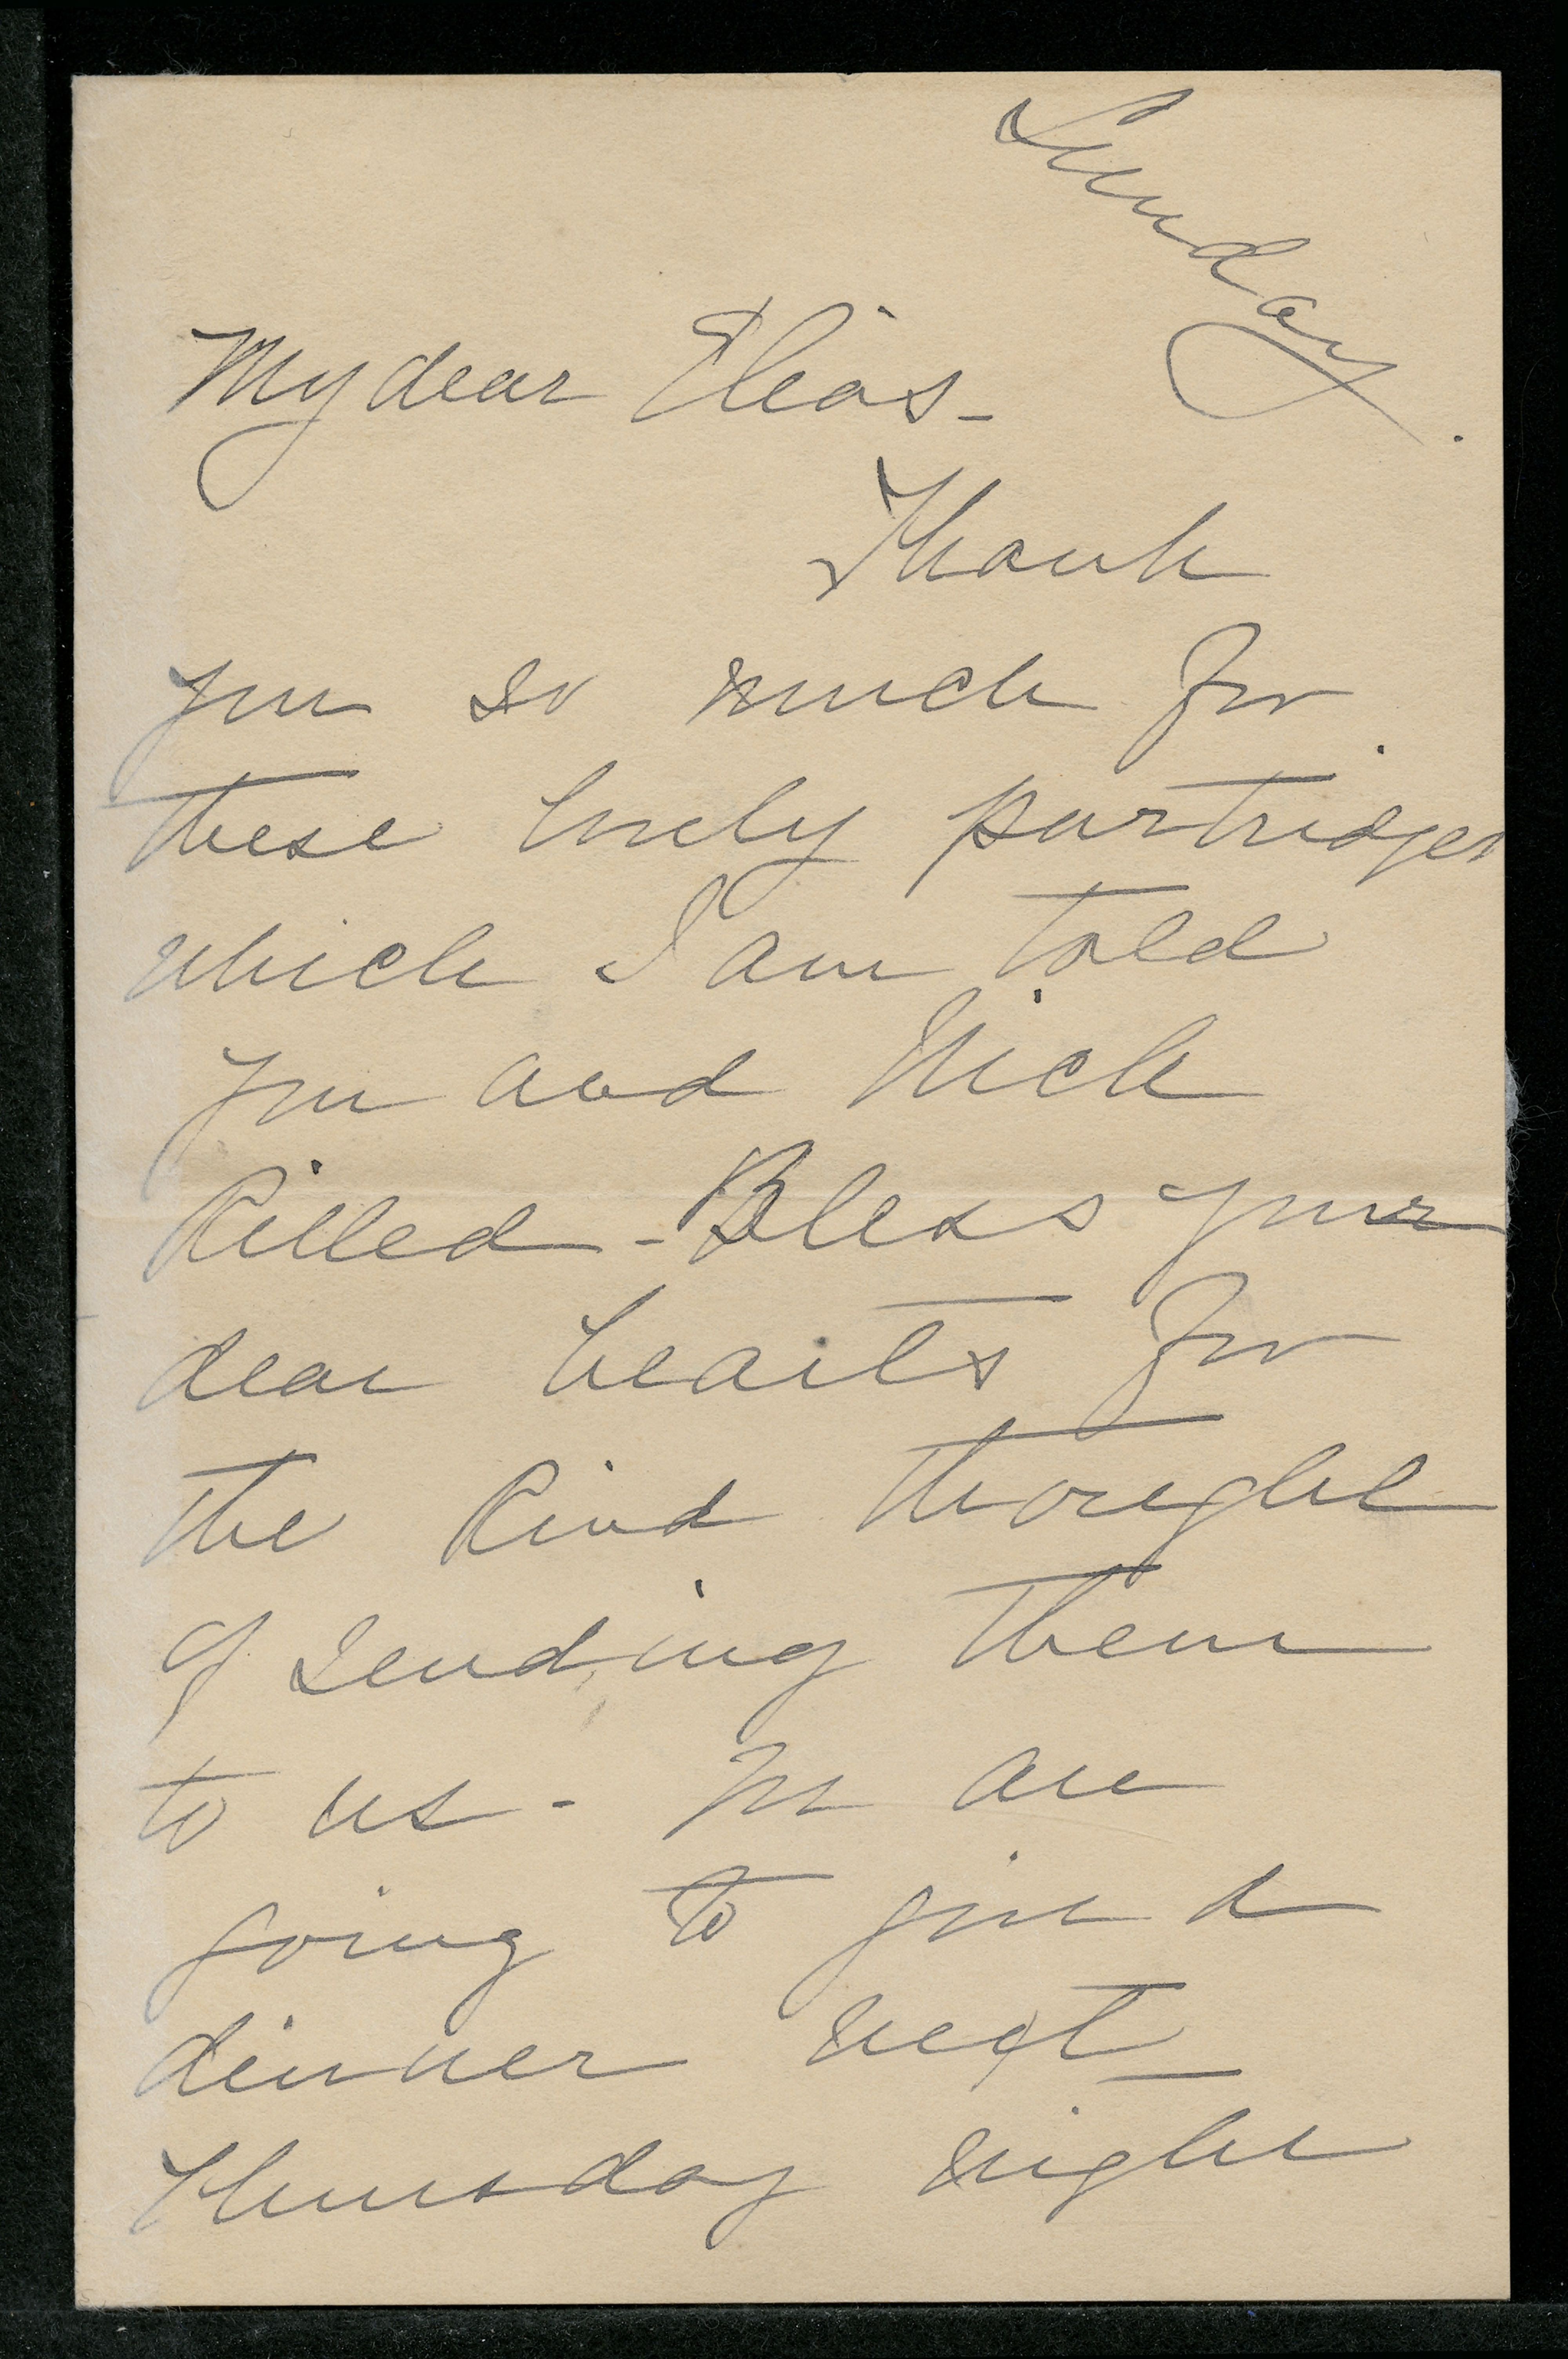 Sunday.
My dear Elias -
Thank
you so much for
these lovely partridges
which I am told
you and Nick
killed - Bless your
dear hearts for
the kind thought
of sending them
to us - We are
going to give a
dinner next
Thursday night